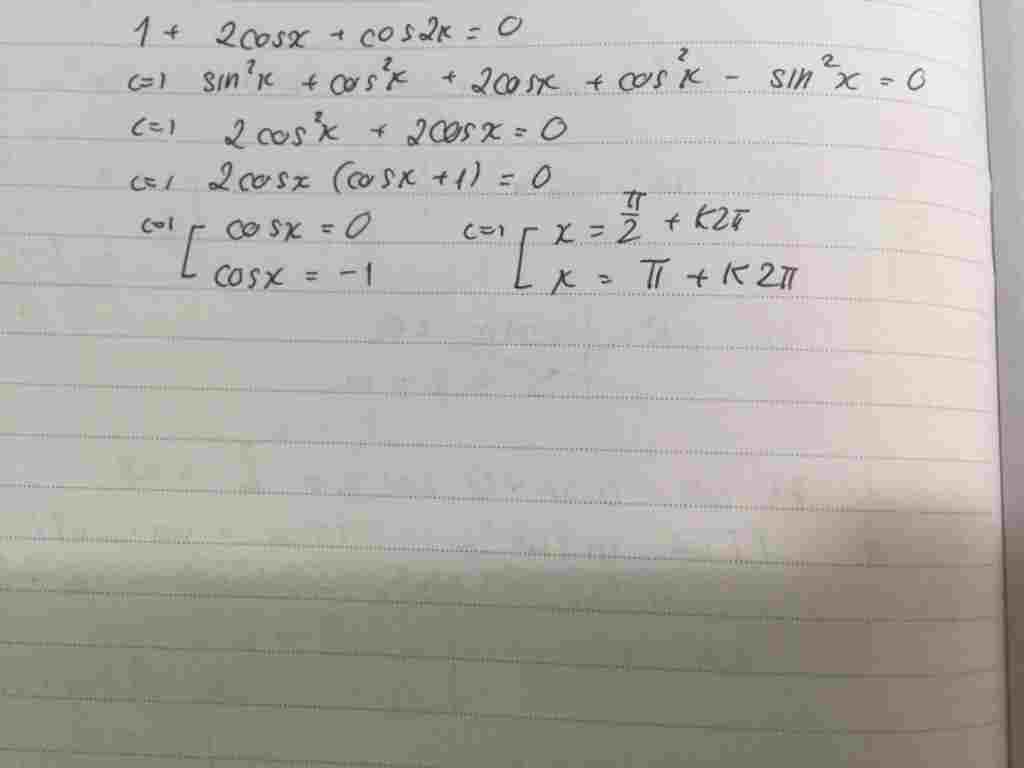 1 + 2cosx + cos2x = 0
<=> sin²x + cos²x + 2cosx + cos²x - sin²x = 0
<=> 2cos²x + 2cosx = 0
<=> 2cosx (cosx + 1) = 0
<=> [ cosx = 0 <=> [ x = π/2 + K2π
cosx = -1 x = π + K2π